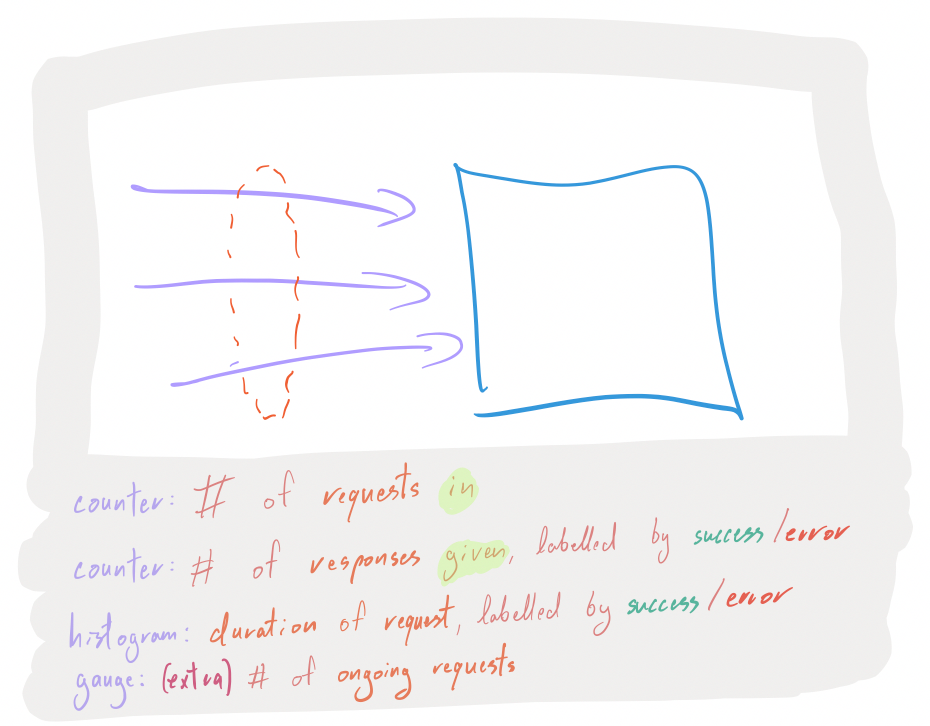 counter: # of requests in
counter: # of responses given, labelled by success/error
histogram: duration of request, labelled by success/error
gauge: (extra) # of ongoing requests